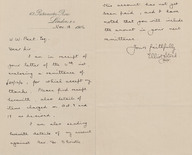 London
Nov. 8
W. W. Peet, Esq.
Dear Sir,
I am in receipt of
your letter of the 4th ult
enclosing a remittance of
for which accept my
thanks. Please find receipt
herewith also details of
items charged on
as desired.
I am also sending
herewith details of my account
against
this account has not yet
been paid, and I have
noted that you will include
the amount in your next
remittance.
Yours faithfully